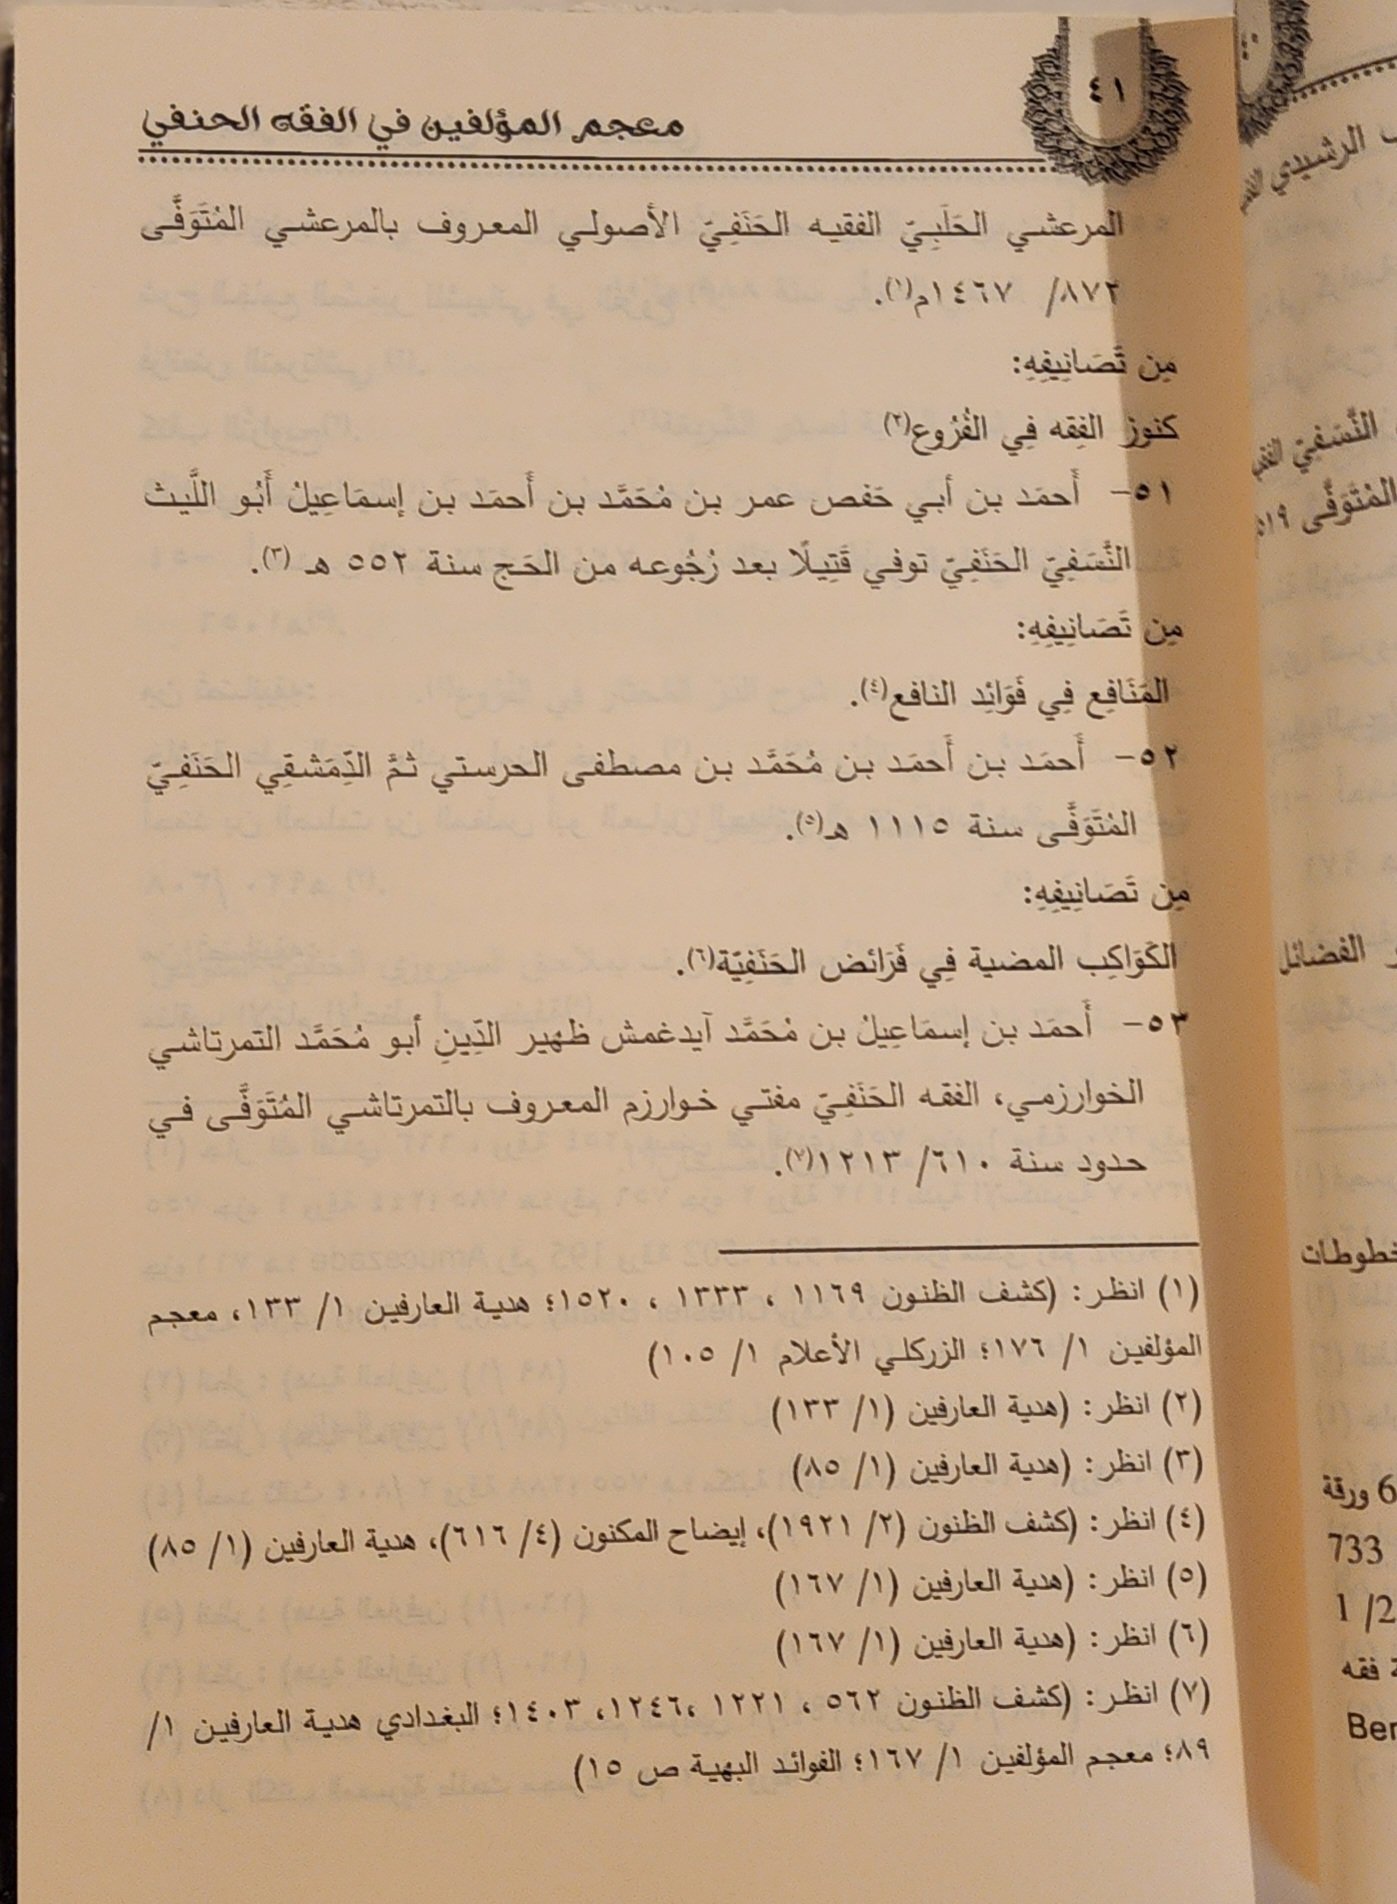 ٤١
معجم المؤلفين في الفقه الحنفي
المرعشي الحَلَبِيّ الفقيه الحَنَفِيّ الأصولي المعروف بالمرعشي المُتَوَفَّى
٨٧٢/ ١٤٦٧م(١).
مِن تَصَانِيفِهِ:
كنوز الفِقه فِي الفُرُوع(٢)
٥١- أَحمَد بن أبي حَفص عمر بن مُحَمَّد بن أَحمَد بن إسمَاعِيلُ أَبُو اللَّيث
النَّسَفِيّ الحَنَفِيّ توفي قَتِيلًا بعد رُجُوعه من الحَج سنة ٥٥٢ هـ (٣).
مِن تَصَانِيفِهِ:
المَنَافِع فِي فَوَائِد النافع(٤).
٥٢- أَحمَد بن أَحمَد بن مُحَمَّد بن مصطفى الحرستي ثمَّ الدِّمَشقِي الحَنَفِيّ
المُتَوَفَّى سنة ١١١٥ هـ(٥).
مِن تَصَانِيفِهِ:
الكَوَاكِب المضية فِي فَرَائض الحَنَفِيّة(٦).
٥٣- أَحمَد بن إسمَاعِيلُ بن مُحَمَّد آيدغمش ظهير الدِّينِ أبو مُحَمَّد التمرتاشي
الخوارزمي، الفقه الحَنَفِيّ مفتي خوارزم المعروف بالتمرتاشي المُتَوَفَّى في
حدود سنة ٦١٠/ ١٢١٣(٧).
(١) انظر: (كشف الظنون ١١٦٩ ، ١٣٣٣ ، ١٥٢٠؛ هدية العارفين ١/ ١٣٣، معجم
المؤلفين ١/ ١٧٦؛ الزركلي الأعلام ١/ ١٠٥)
(٢) انظر: (هدية العارفين (١/ ١٣٣)
(٣) انظر: (هدية العارفين (١/ ٨٥)
(٤) انظر: (كشف الظنون (٢/ ١٩٢١)، إيضاح المكنون (٤/ ٦١٦)، هدية العارفين (١/ ٨٥)
(٥) انظر: (هدية العارفين (١/ ١٦٧)
(٦) انظر: (هدية العارفين (١/ ١٦٧)
(٧) انظر: (كشف الظنون ٥٦٢ ، ١٢٢١ ،١٢٤٦، ١٤٠٣؛ البغدادي هدية العارفين ١/
٨٩؛ معجم المؤلفين ١/ ١٦٧؛ الفوائد البهية ص ١٥)
الرشيدي
النَّسَفِيّ
المُتَوَفَّى ٥١٩
الفضائل
6 ورقة
733
1 /2
فقه